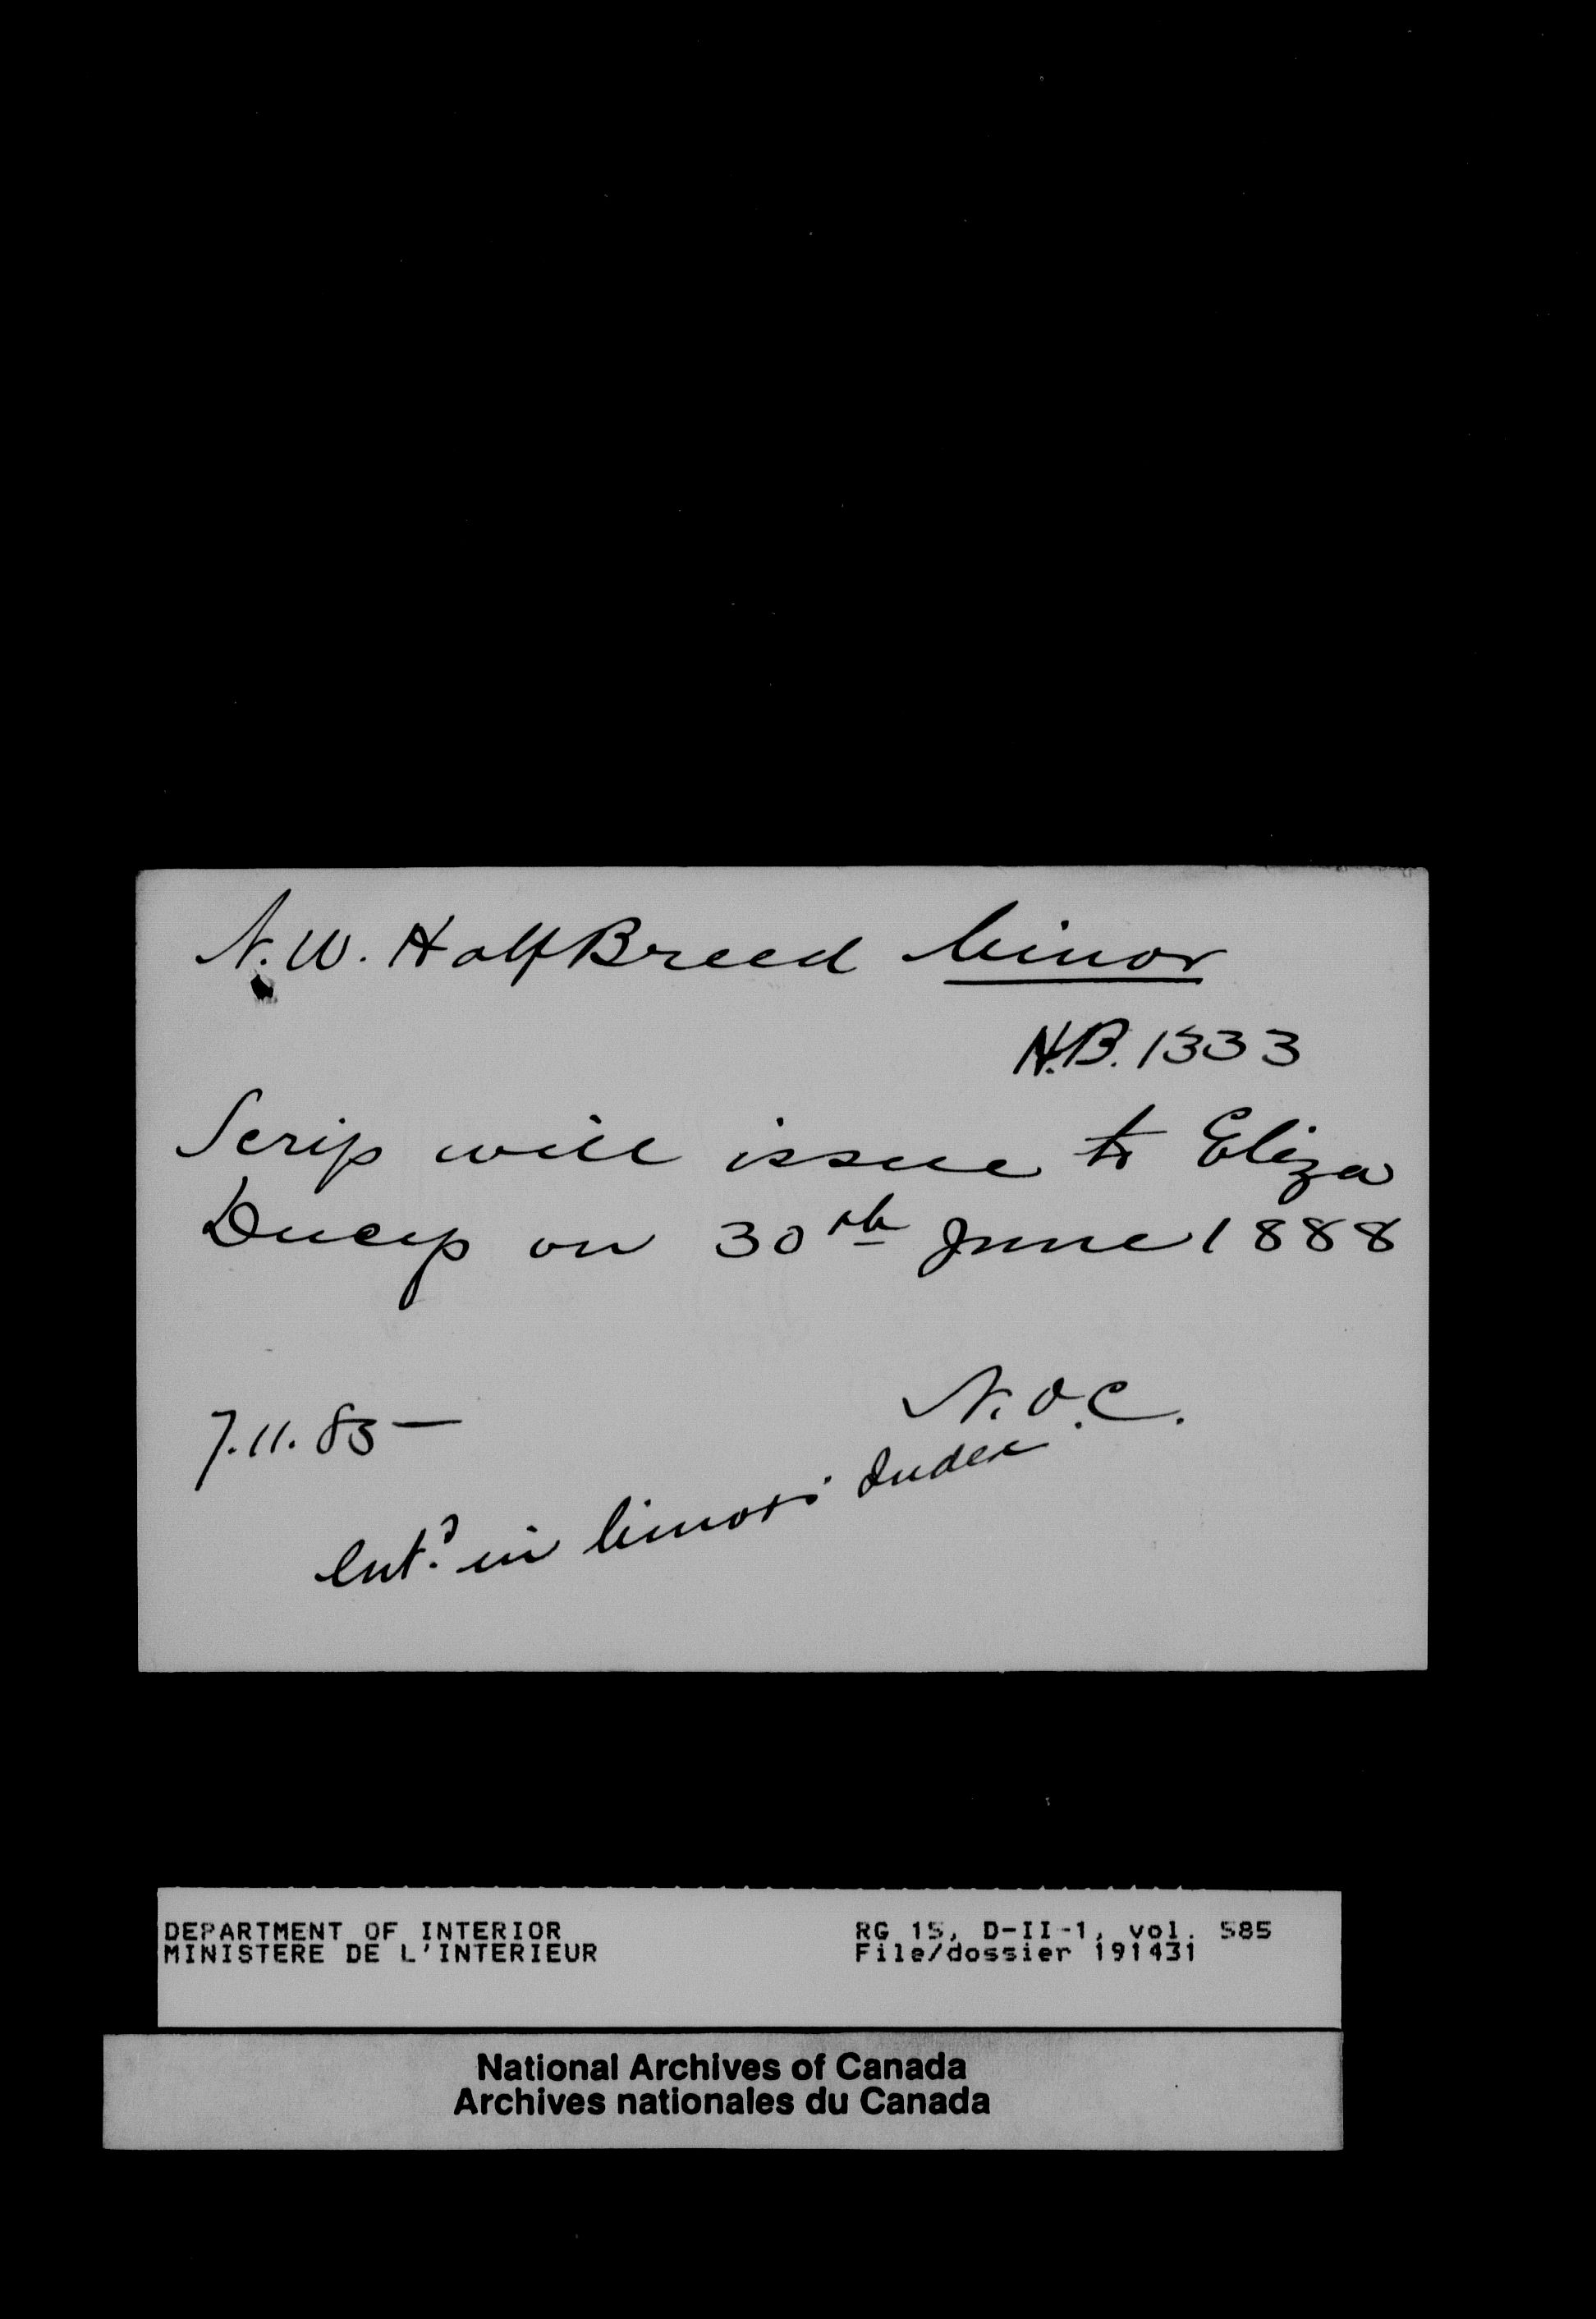 N.W. Half Breed Minor
H.B. 1333
Scrip will issue to Eliza
Ducep on 30th June 1888
7.11.85 —
N.O.C.
Entd in Minors Index
DEPARTMENT OF INTERIOR
MINISTERE DE L'INTERIEUR
RG 15, D-II-1, vol. 585
File/dossier 191431
National Archives of Canada
Archives nationales du Canada